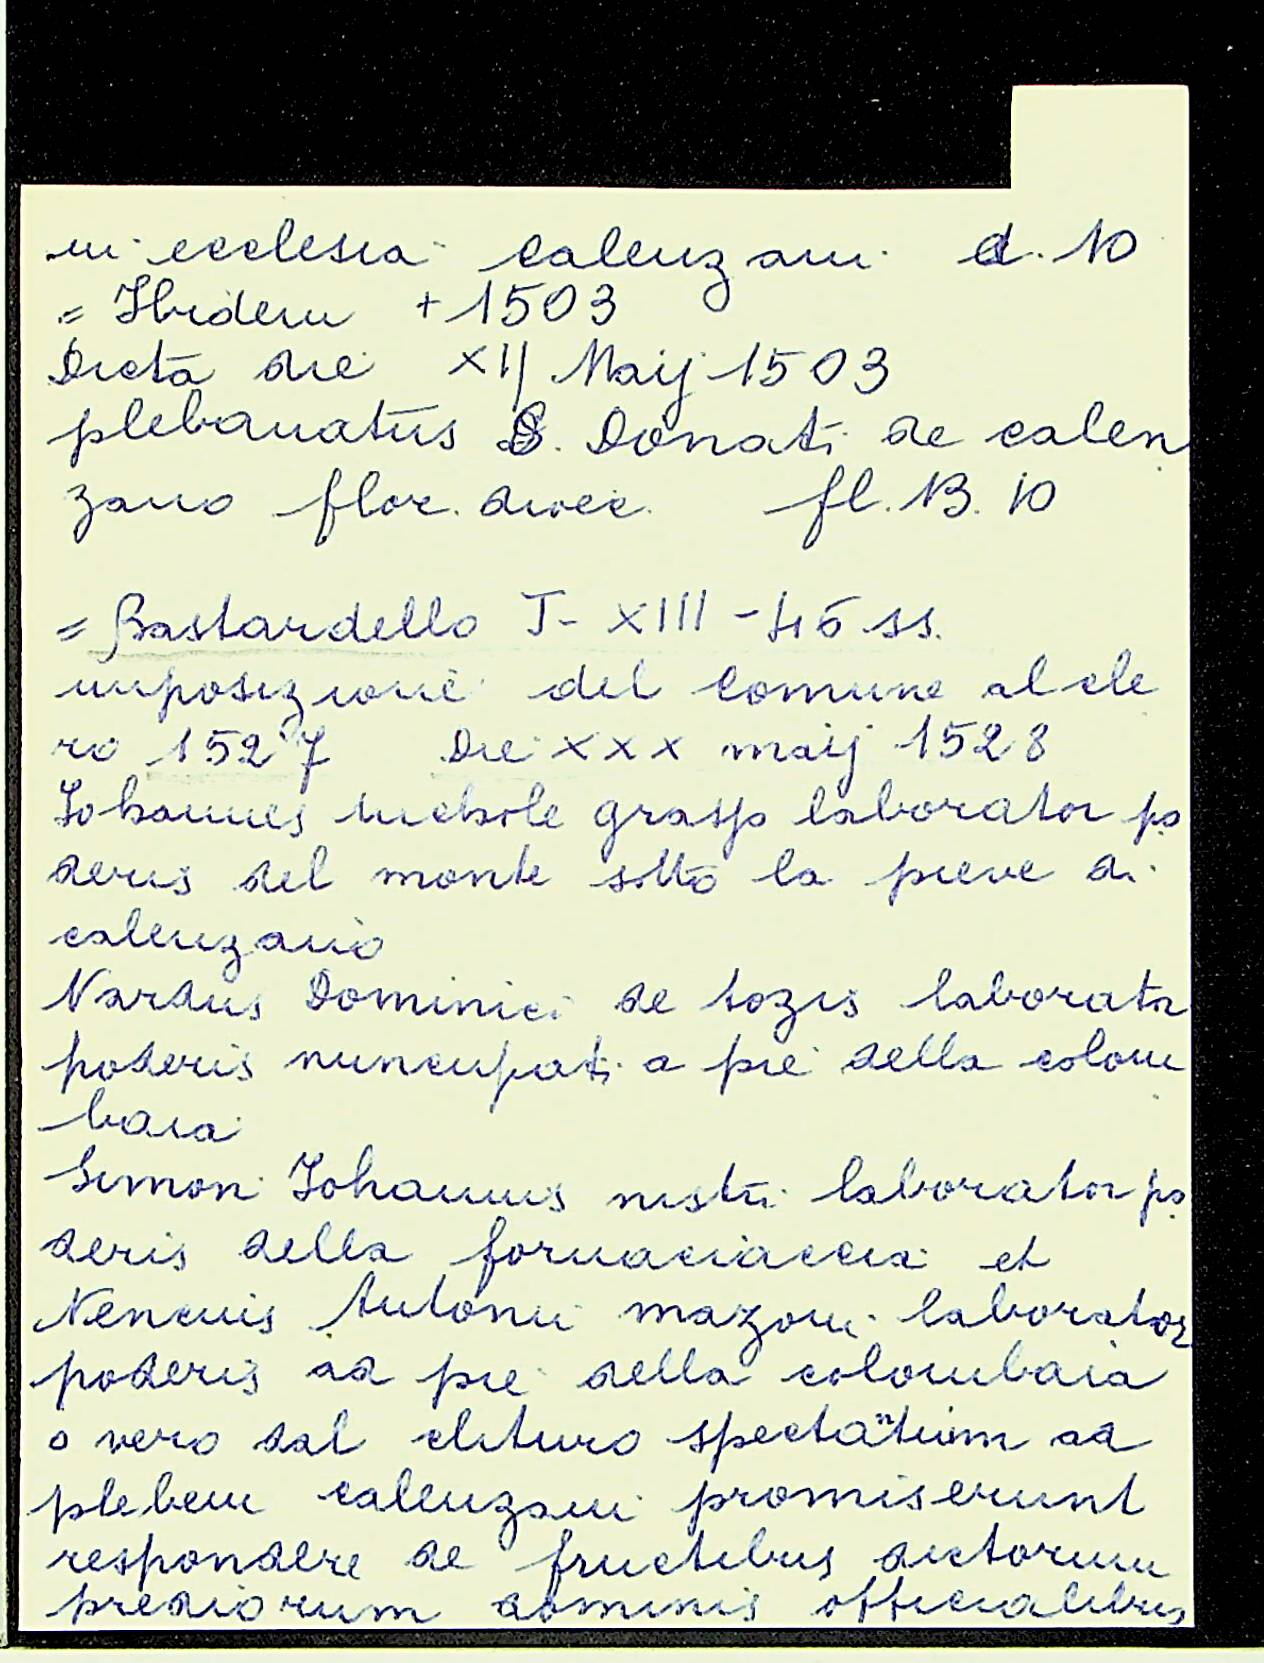 in ecclesia calenzani d. 10
= Ibidem + 1503
Dicta die XIJ Maij 1503
plebanatus S. Donati de calen
zano flor. dioec. fl. 13. 10
= Bastardello J - XIII - 46 ss.
imposizione del Comune al cle
ro 1527 Die XXX maij 1528
Johannes michole laborator po
deris del monte sotto la pieve di
calenzano
Nardus Dominici de tozis laborator
poderis nuncupati a piè della colom
baia
Simon Johannis laborator po
deris della fornaciaccia et
Nencius Antonii mazoni laborator
poderis ad piè della colombaia
o vero dal spectantium ad
plebem calenzani promiserunt
respondere de fructibus dictorum
prediorum dominis officialibus